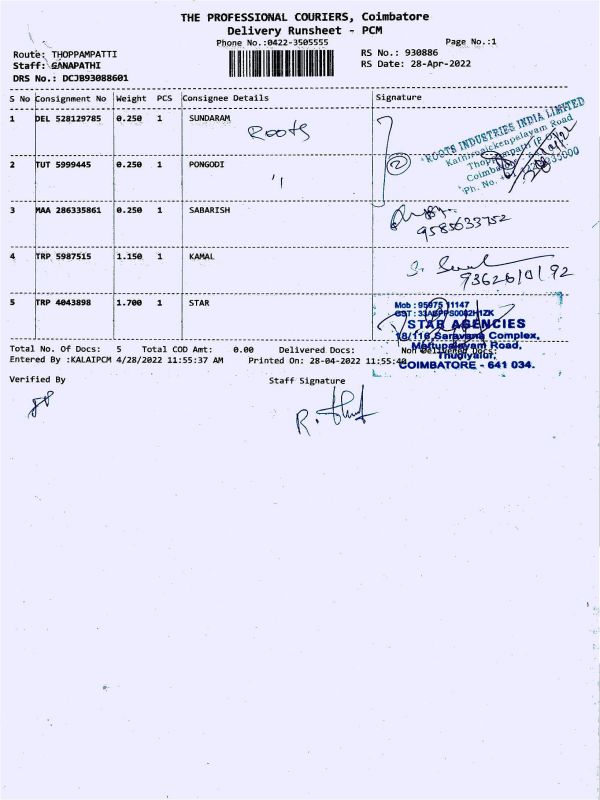 THE PROFESSIONAL COURIERS, Coimbatore
Delivery Runsheet - PCM
Phone No.:0422-3505555
Page No.:1
Route: THOPPAMPATTI
RS No.: 930886
Staff: GANAPATHI
RS Date: 28-Apr-2022
DRS No.: DCJB93088601
S No Consignment No Weight PCS Consignee Details Signature
1 DEL 528129785 0.250 1 SUNDARAM
Roots
ROOTS INDUSTRIES INDIA LIMITED
Kathirnaickenpalayam Road
2
2 TUT 5999445 0.250 1 PONGODI
3 MAA 286335861 0.250 1 SABARISH
9585633752
4 TRP 5987515 1.150 1 KAMAL
5 TRP 4043898 1.700 1 STAR
Mob : 95975 11147
STAR AGENCIES
18/116, Saravana Complex,
Mettupalayam Road,
Thudiyalur,
COIMBATORE - 641 034.
Total No. Of Docs: 5 Total COD Amt: 0.00 Delivered Docs: Non Delivered Docs:
Entered By :KALAIPCM 4/28/2022 11:55:37 AM Printed On: 28-04-2022 11:55:40
Verified By Staff Signature